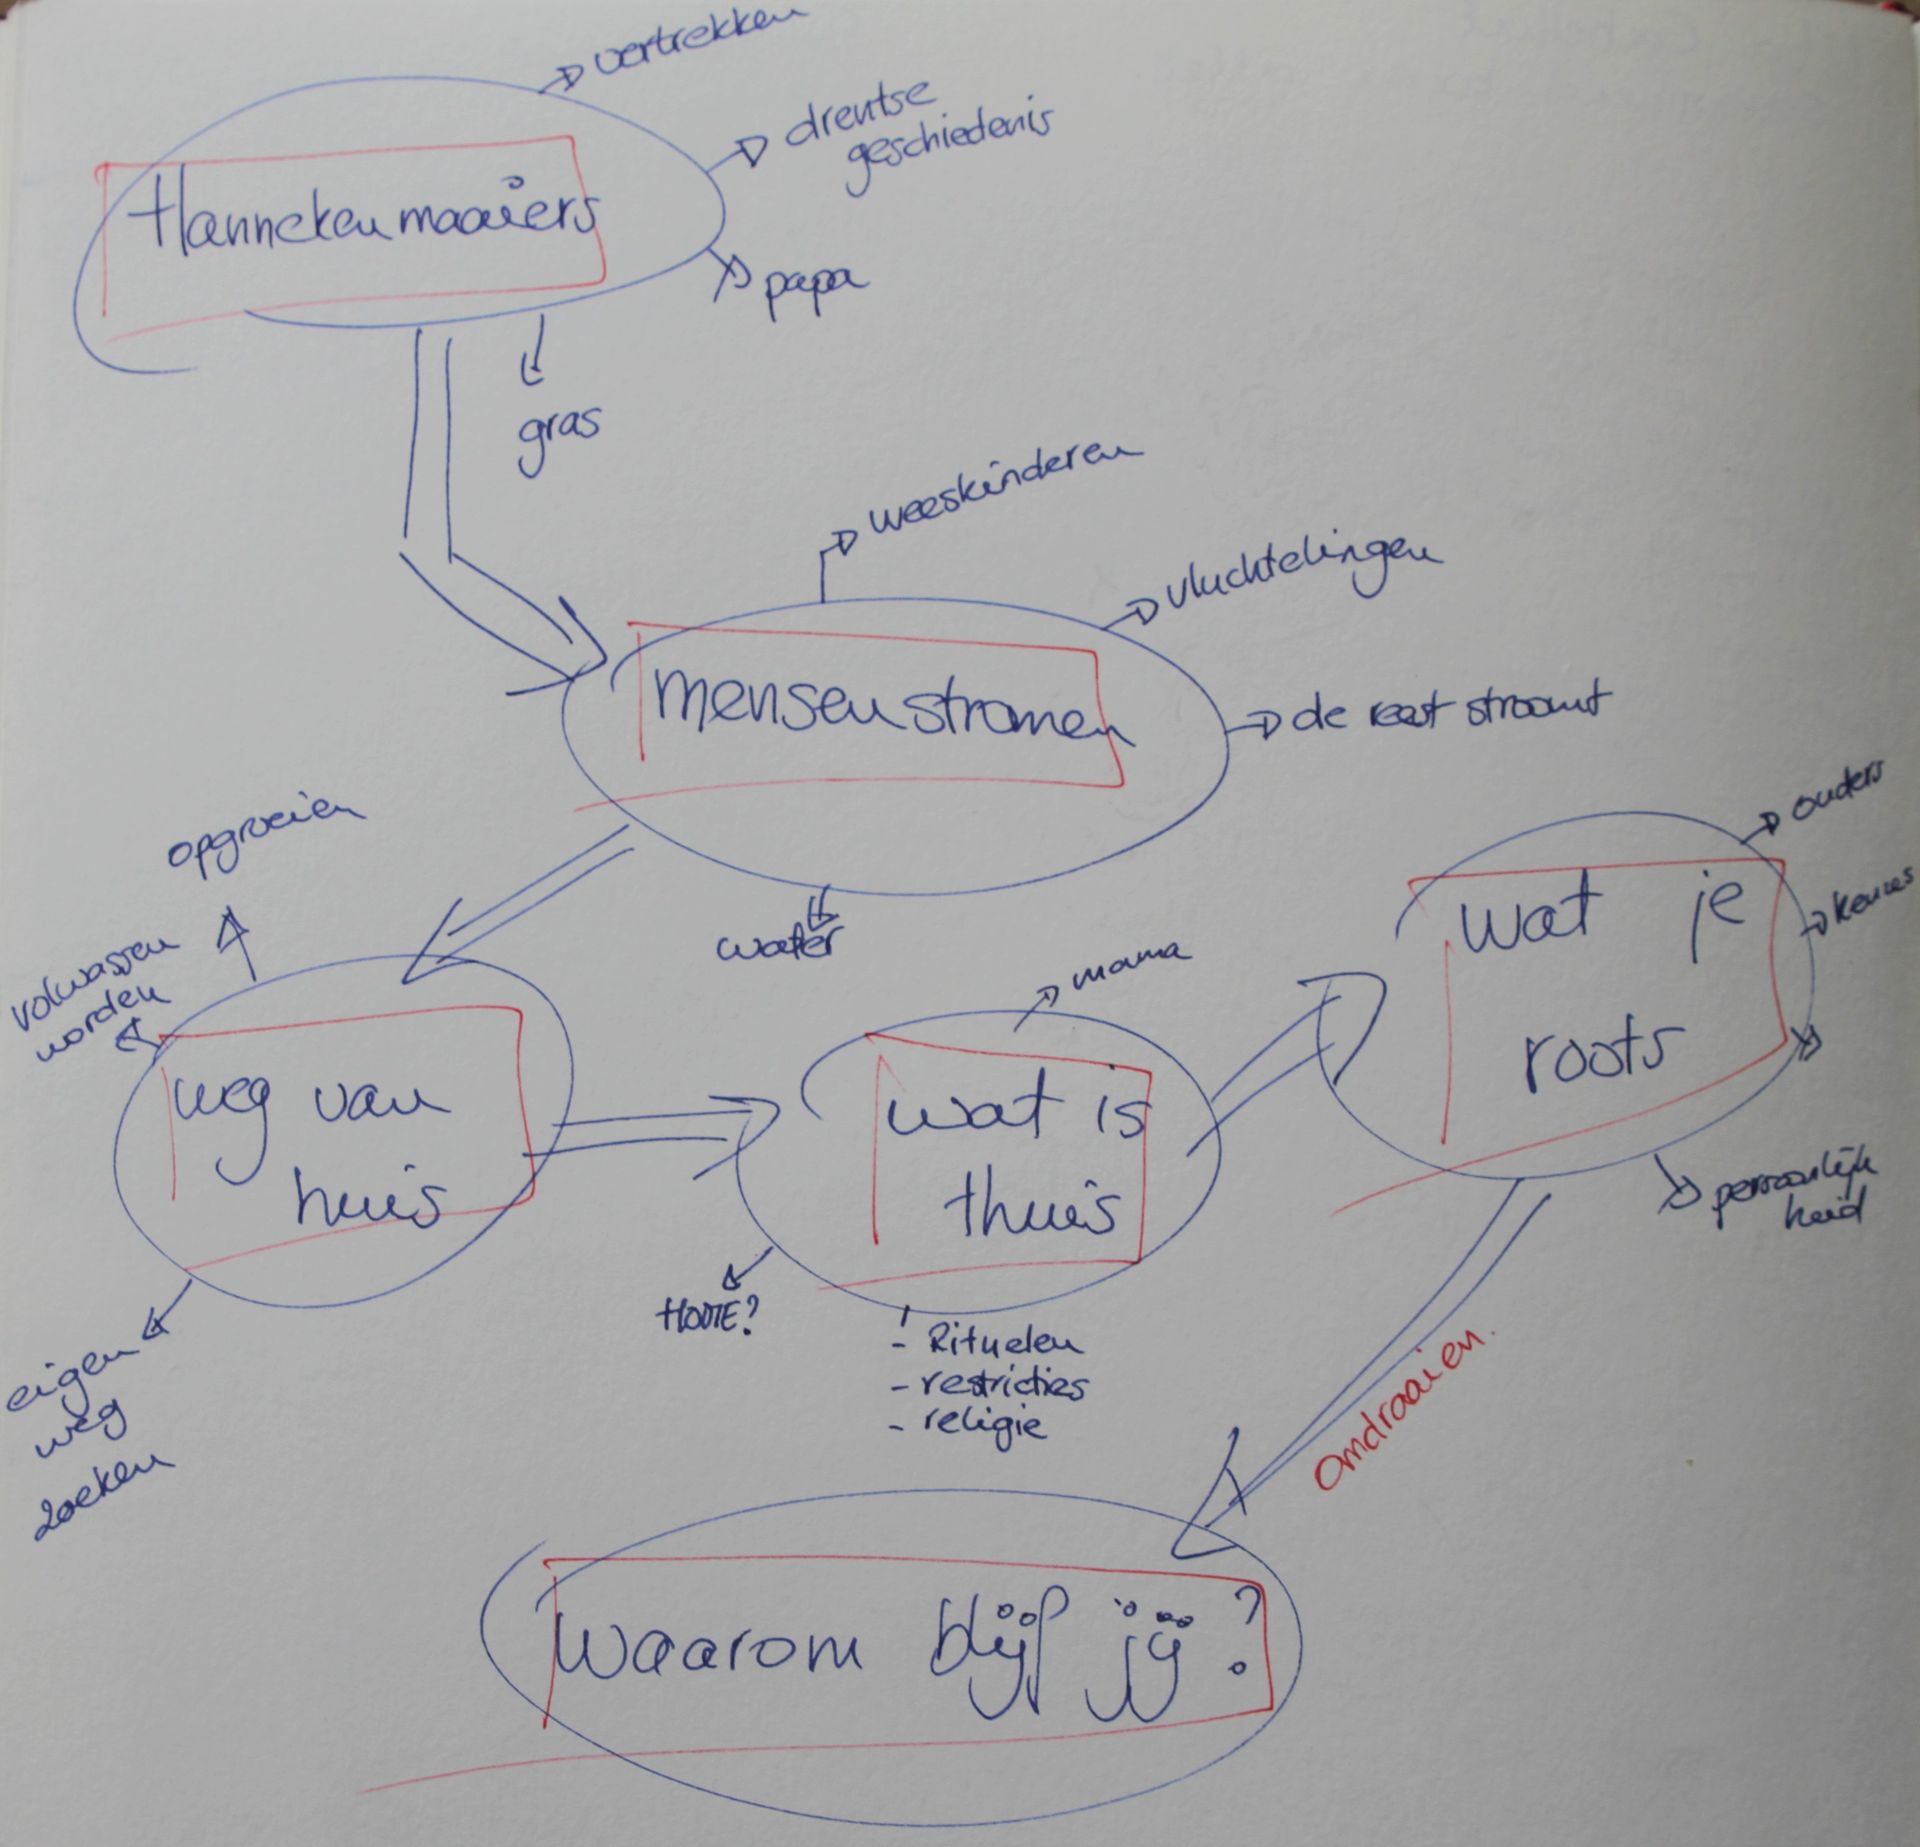 vertrekken
drentse
geschiedenis
Hannekenmaaiers
papa
gras
weeskinderen
vluchtelingen
mensenstromen
de reest stroomt
water
opgroeien
volwassen
worden
weg van
huis
eigen
weg
zoeken
mama
wat is
thuis
HOME?
- Rituelen
- restricties
- religie
ouders
keuzes
wat je
roots
persoonlijk
heid
Omdraaien.
waarom blijf jij ?